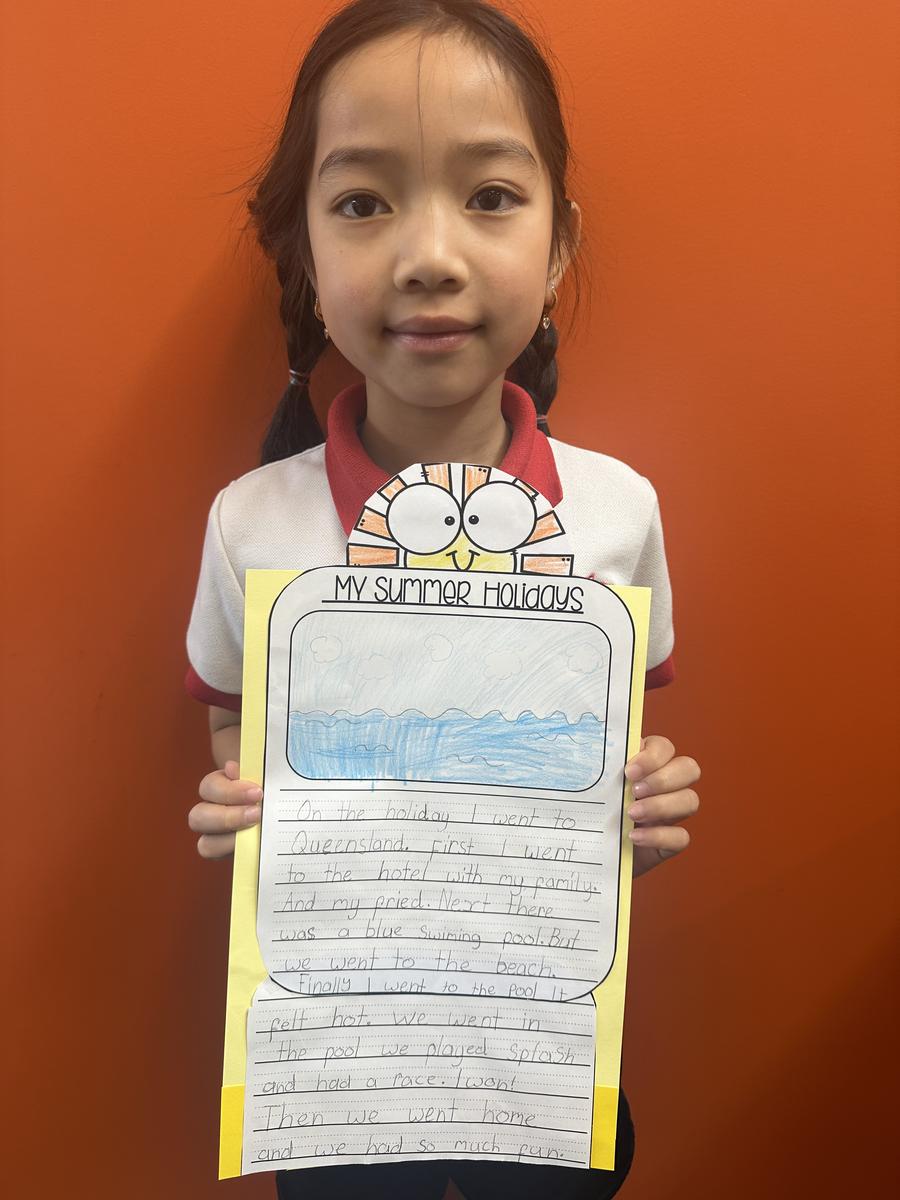 MY SUMMER HOLIDAYS
On the holiday I went to
Queensland. First I went
to the hotel with my family.
And my fried. Next There
was a blue swiming pool. But
we went to the beach.
Finally I went to the pool It
felt hot. We went in
the pool we played splash
and had a race. I won!
Then we went home
and we had so much fun.